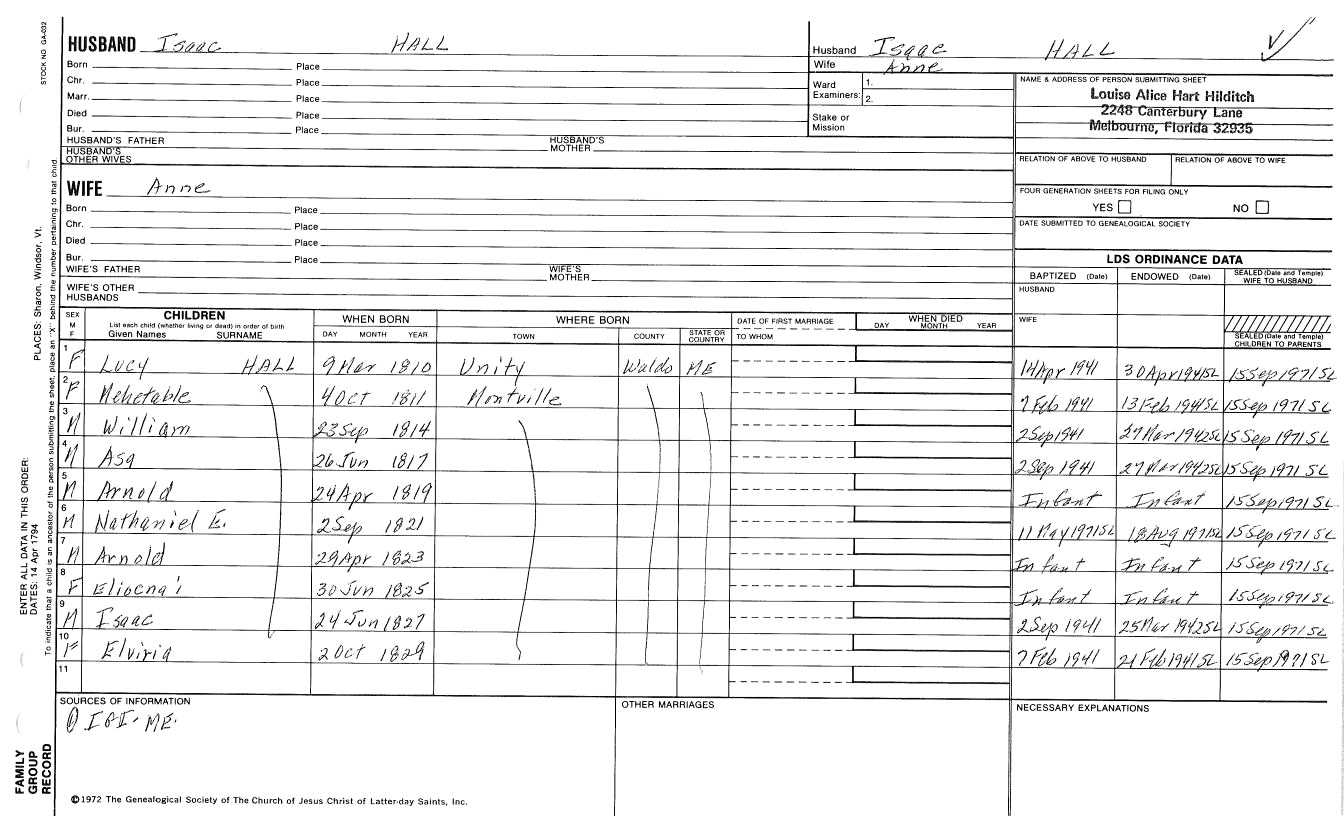 STOCK NO. GA-032
PLACES: Sharon, Windsor, Vt.
ENTER ALL DATA IN THIS ORDER:
DATES: 14 Apr 1794
To indicate that a child is an ancestor of the person submitting the sheet, place an "X" behind the number pertaining to that child.
FAMILY GROUP RECORD
HUSBAND Isaac HALL
Born Place
Chr. Place
Marr. Place
Died Place
Bur. Place
HUSBAND'S FATHER HUSBAND'S MOTHER
HUSBAND'S OTHER WIVES
WIFE Anne
Born Place
Chr. Place
Died Place
Bur. Place
WIFE'S FATHER WIFE'S MOTHER
WIFE'S OTHER HUSBANDS
Husband Isaac HALL
Wife Anne
Ward Examiners: 1. 2.
Stake or Mission
NAME & ADDRESS OF PERSON SUBMITTING SHEET
Louise Alice Hart Hilditch
2248 Canterbury Lane
Melbourne, Florida 32935
RELATION OF ABOVE TO HUSBAND RELATION OF ABOVE TO WIFE
FOUR GENERATION SHEETS FOR FILING ONLY
YES NO
DATE SUBMITTED TO GENEALOGICAL SOCIETY
LDS ORDINANCE DATA
BAPTIZED (Date) ENDOWED (Date) SEALED (Date and Temple) WIFE TO HUSBAND
HUSBAND
WIFE
SEALED (Date and Temple) CHILDREN TO PARENTS
SEX M F CHILDREN List each child (whether living or dead) in order of birth Given Names SURNAME WHEN BORN DAY MONTH YEAR WHERE BORN TOWN COUNTY STATE OR COUNTRY DATE OF FIRST MARRIAGE TO WHOM WHEN DIED DAY MONTH YEAR
1 F Lucy HALL 9 Mar 1810 Unity Waldo ME 14 Apr 1941 30 Apr 1941 SL 15 Sep 1971 SL
2 F Mehetable 4 Oct 1811 Montville 7 Feb 1941 13 Feb 1941 SL 15 Sep 1971 SL
3 M William 23 Sep 1814 2 Sep 1941 27 Mar 1942 SL 15 Sep 1971 SL
4 M Asa 26 Jun 1817 2 Sep 1941 27 Mar 1942 SL 15 Sep 1971 SL
5 M Arnold 24 Apr 1819 Infant Infant 15 Sep 1971 SL
6 M Nathaniel E. 2 Sep 1821 11 May 1971 SL 18 Aug 1971 SL 15 Sep 1971 SL
7 M Arnold 29 Apr 1823 Infant Infant 15 Sep 1971 SL
8 F Elioenai 30 Jun 1825 Infant Infant 15 Sep 1971 SL
9 M Isaac 24 Jun 1827 2 Sep 1941 25 Mar 1942 SL 15 Sep 1971 SL
10 F Elviria 2 Oct 1829 7 Feb 1941 21 Feb 1941 SL 15 Sep 1971 SL
11
SOURCES OF INFORMATION
① IGI - ME.
OTHER MARRIAGES
NECESSARY EXPLANATIONS
©1972 The Genealogical Society of The Church of Jesus Christ of Latter-day Saints, Inc.